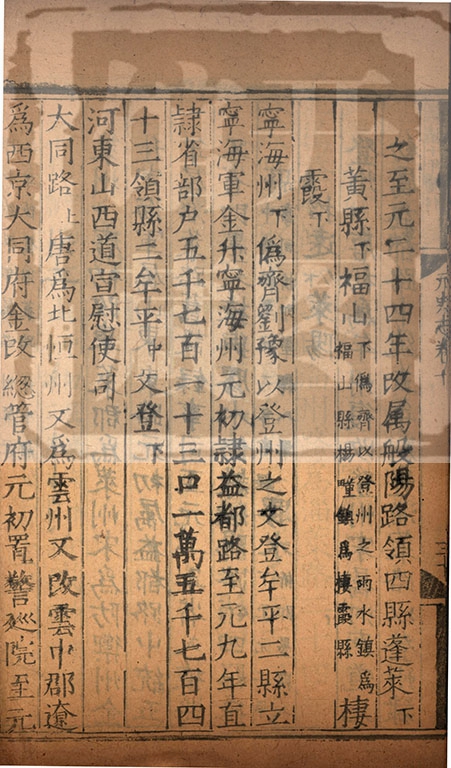 之至元二十四年改属般陽路領四縣蓬萊下
黃縣下福山下偽齊以登州之兩水鎮爲
福山縣楊疃鎮爲棲霞縣棲
霞下
寧海州下偽齊劉豫以登州之文登牟平二縣立
寧海軍金升寧海州元初隸益都路至元九年直
隸省部户五千七百一十三口一萬五千七百四
十三領縣二牟平中文登下
河東山西道宣慰使司
大同路上唐爲北恒州又爲雲州又改雲中郡遼
爲西京大同府金改總管府元初置警巡院至元